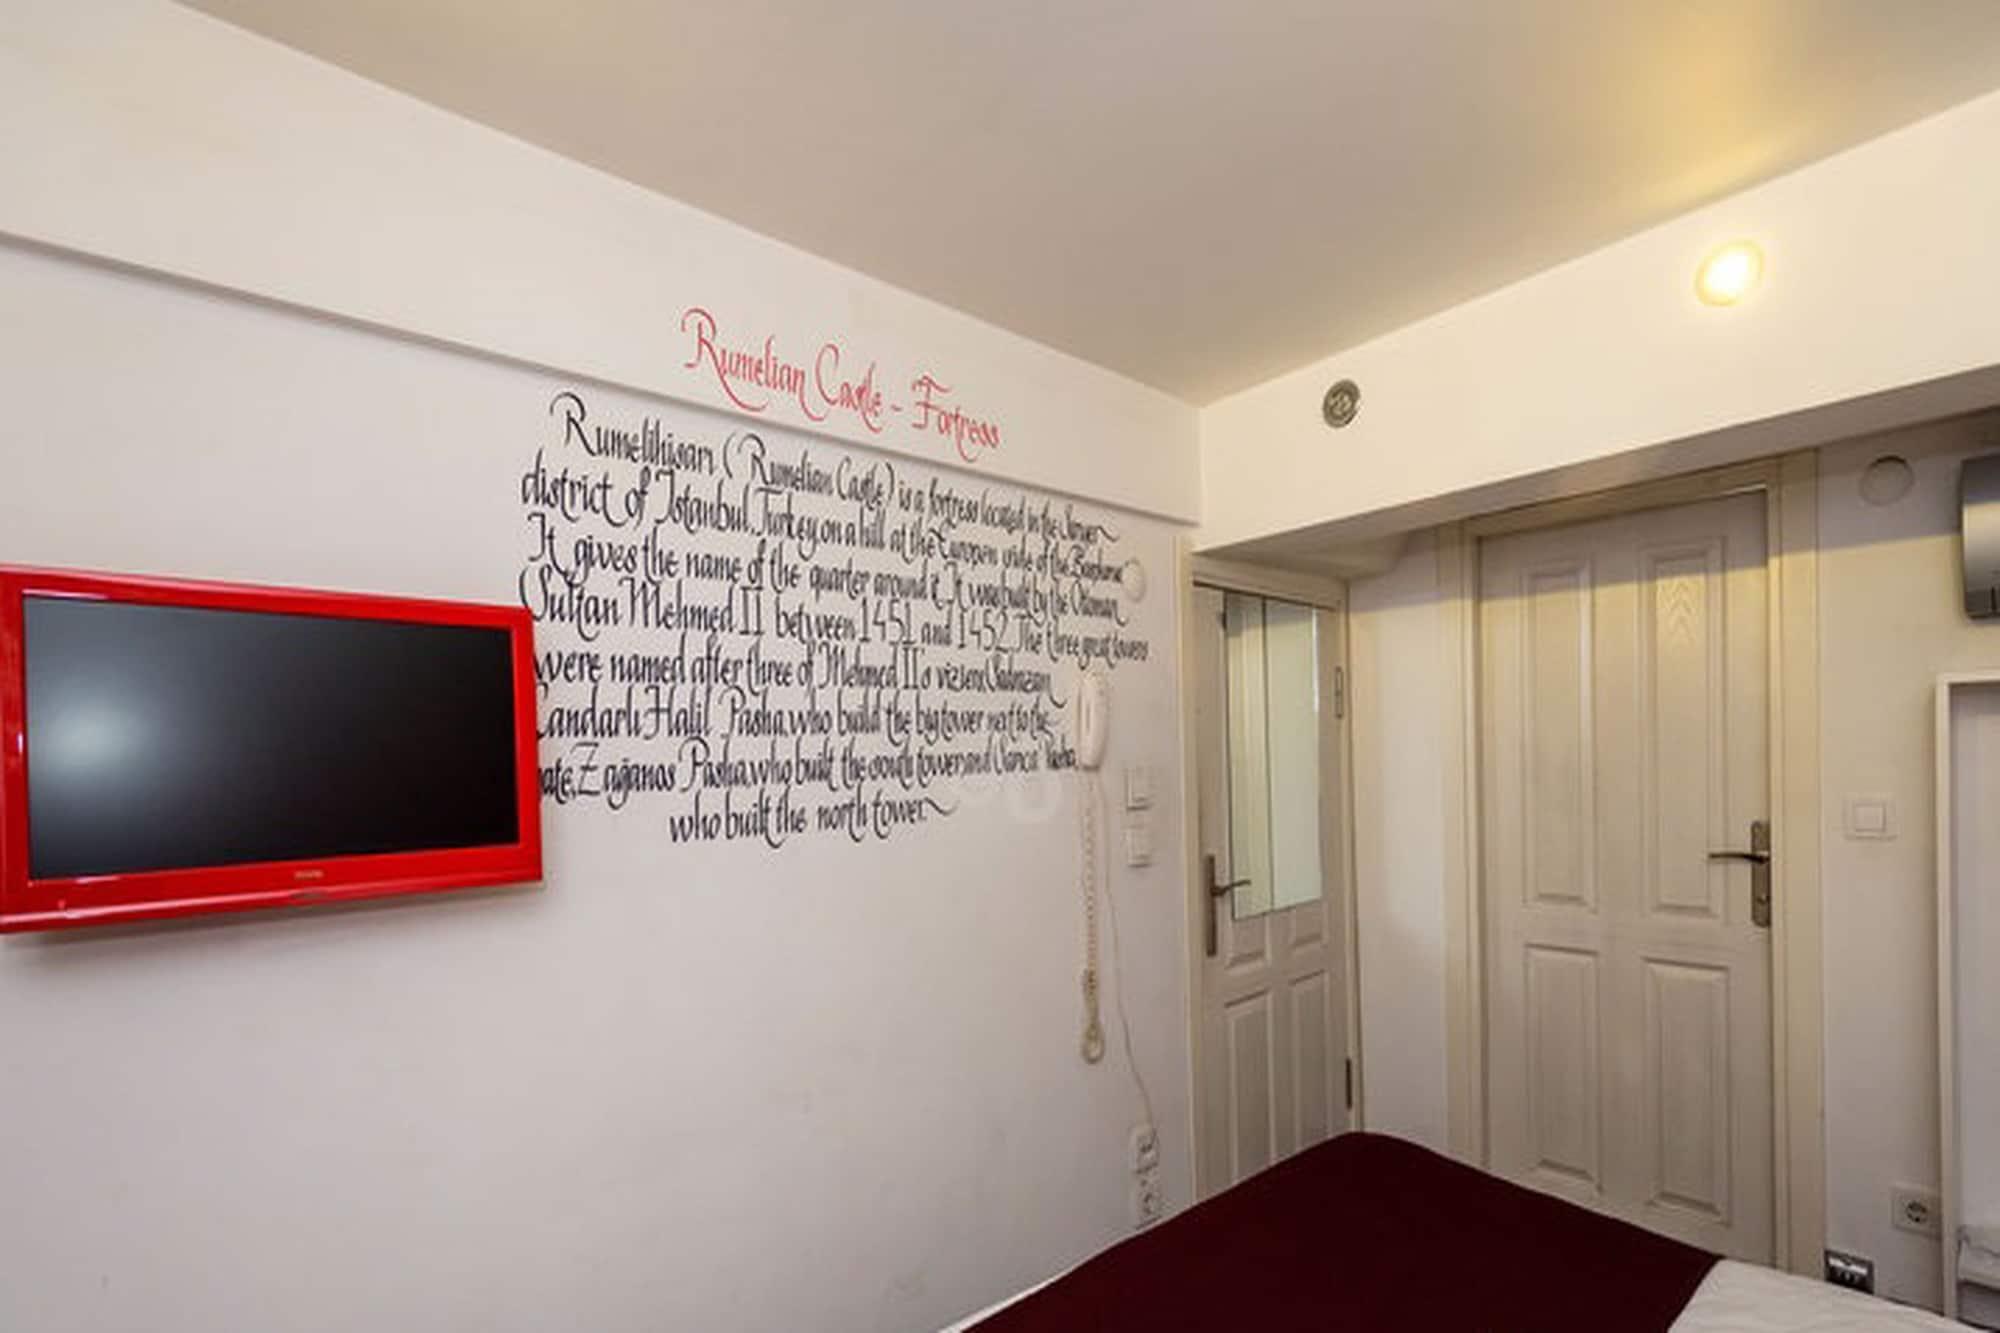 Rumelian Castle - Fortress
Rumelihisarı (Rumelian Castle) is a fortress located in the Sarıyer
district of Istanbul, Turkey, on a hill at the Europen side of the Bosphorus.
It gives the name of the quarter around it. It was built by the Ottoman
Sultan Mehmed II between 1451 and 1452. The three great towers
were named after three of Mehmed II's viziers,
Candarlı Halil Pasha, who build the big tower next to the
Zağanos Pasha, who built the south tower, and Sarıca Pasha
who built the north tower.